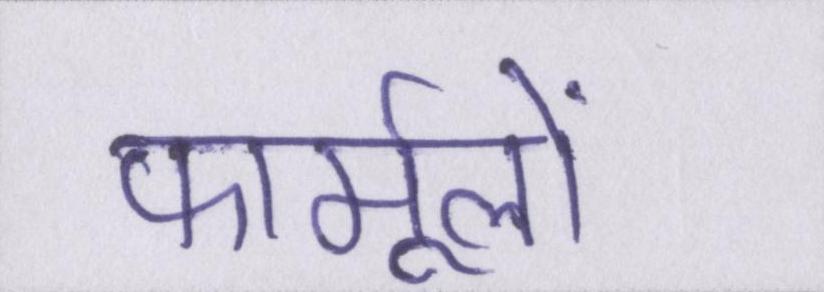 फार्मूलों